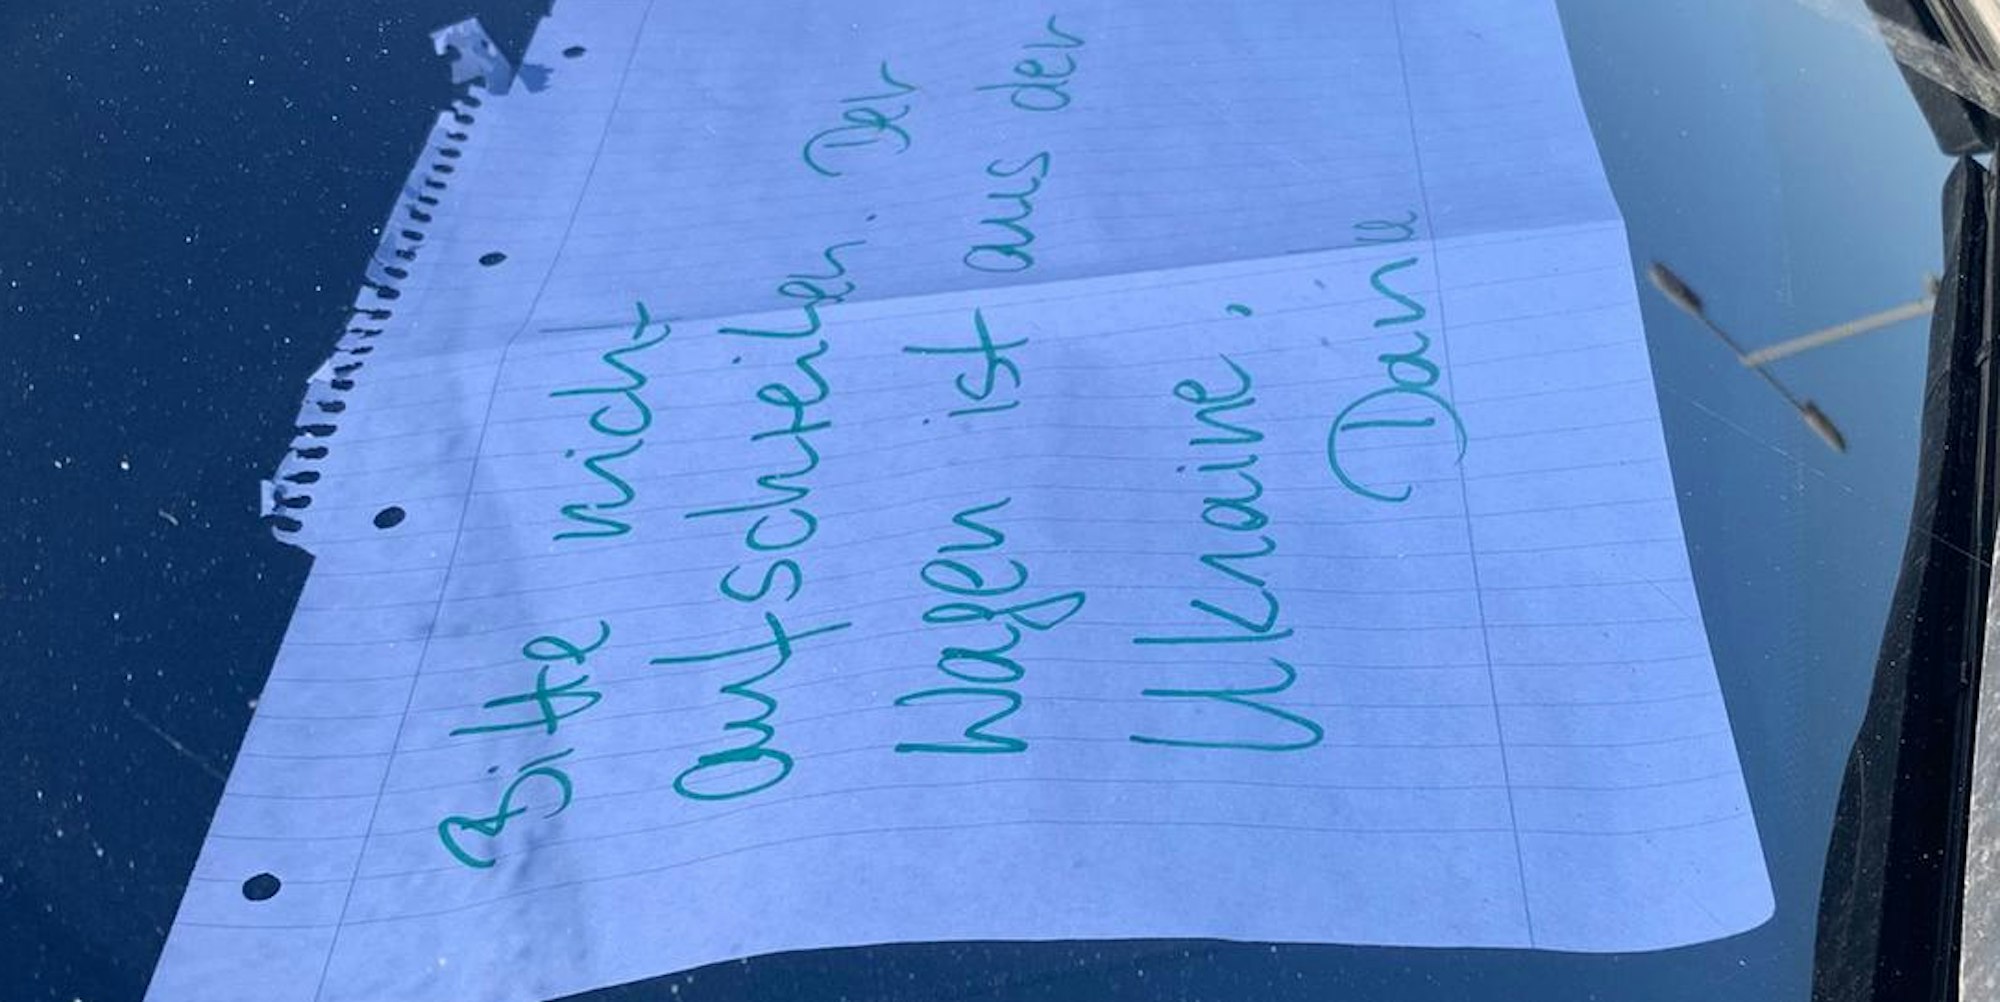 Bitte nicht
aufschreiben. Der
Wagen ist aus der
Ukraine.